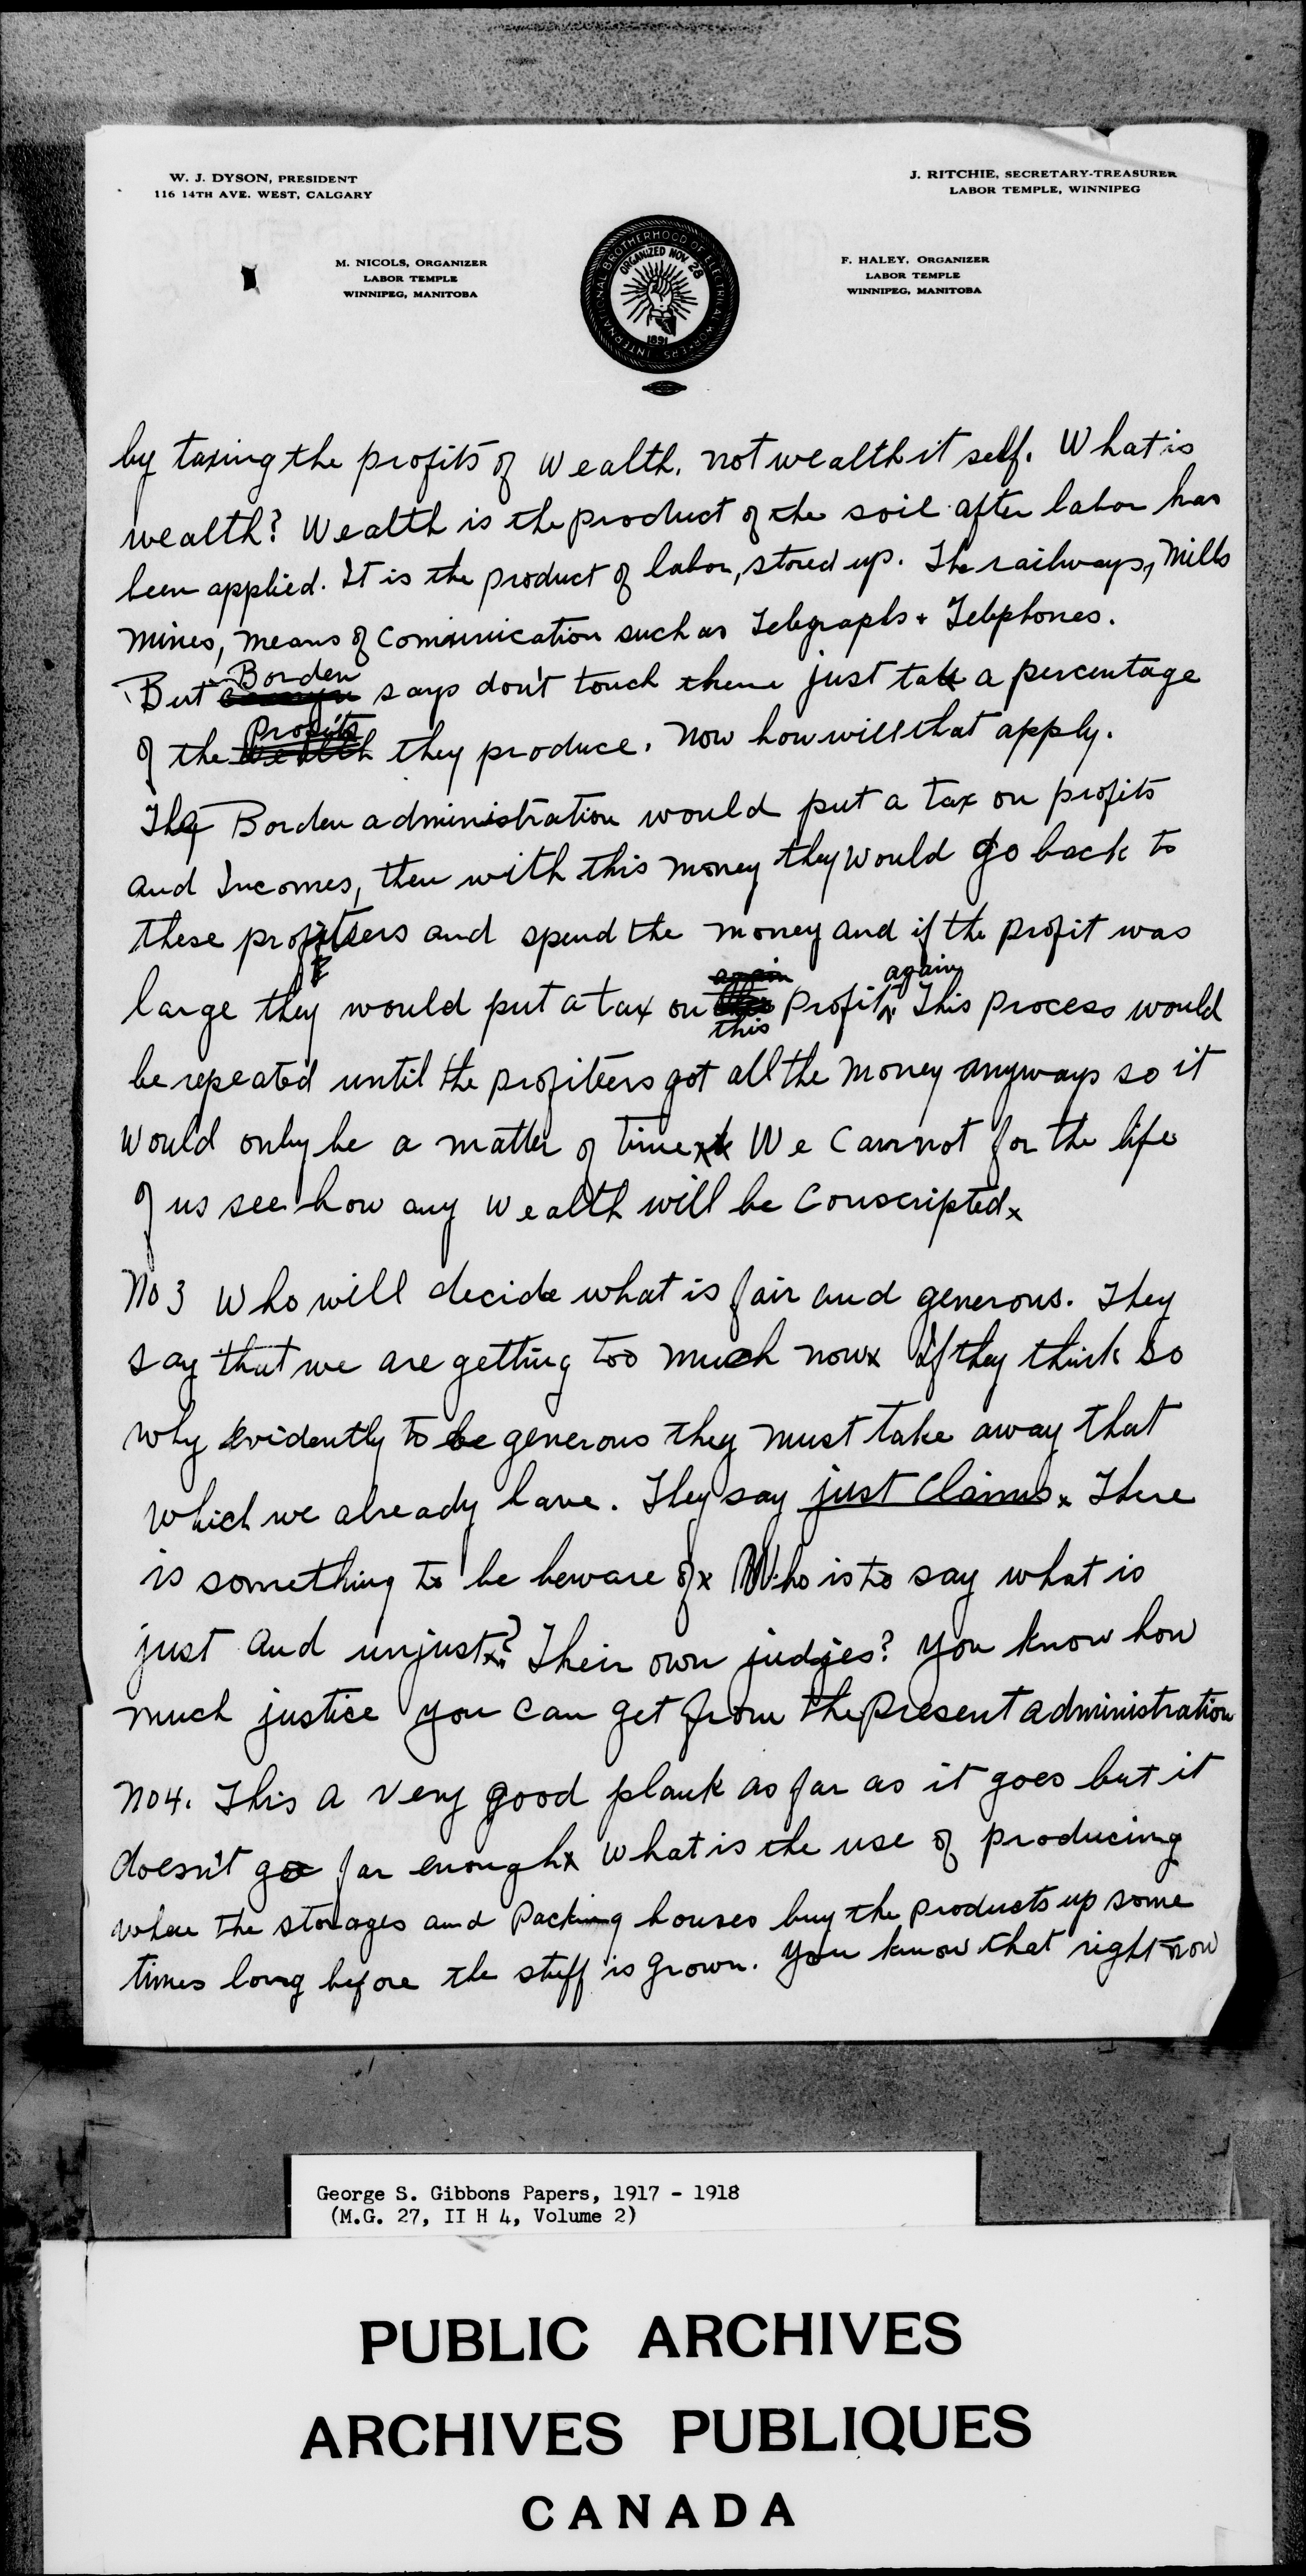 W. J. DYSON, PRESIDENT
116 14TH AVE. WEST, CALGARY
J. RITCHIE, SECRETARY-TREASURER
LABOR TEMPLE, WINNIPEG
M. NICOLS, ORGANIZER
LABOR TEMPLE
WINNIPEG, MANITOBA
F. HALEY, ORGANIZER
LABOR TEMPLE
WINNIPEG, MANITOBA
INTERNATIONAL BROTHERHOOD OF ELECTRICAL WORKERS
ORGANIZED NOV. 28
1891
by taxing the profits of wealth. not wealth it self. What is
wealth? Wealth is the product of the soil after labor has
been applied. It is the product of labor, stored up. The railways, Mills
mines, means of communication such as Telegraphs + Telephones.
But Borden says don't touch them just take a percentage
of the Profits they produce. Now how will that apply.
The Borden administration would put a tax on profits
and Incomes, then with this money they would go back to
these profiteers and spend the money and if the profit was
large they would put a tax on this profit again. This process would
be repeated until the profiteers got all the money anyways so it
would only be a matter of time x We cannot for the life
of us see how any wealth will be Conscripted x
No 3 Who will decide what is fair and generous. They
say that we are getting too much now x If they think so
why evidently to be generous they must take away that
which we already have. They say just claims x There
is something to be beware of x Who is to say what is
just and unjust? Their own judges? You know how
much justice you can get from the present administration
No 4. This a very good plank as far as it goes but it
doesn't go far enough x What is the use of producing
when the storages and Packing houses buy the products up some
times long before the stuff is grown. You know that right now
George S. Gibbons Papers, 1917 - 1918
(M.G. 27, II H 4, Volume 2)
PUBLIC ARCHIVES
ARCHIVES PUBLIQUES
CANADA